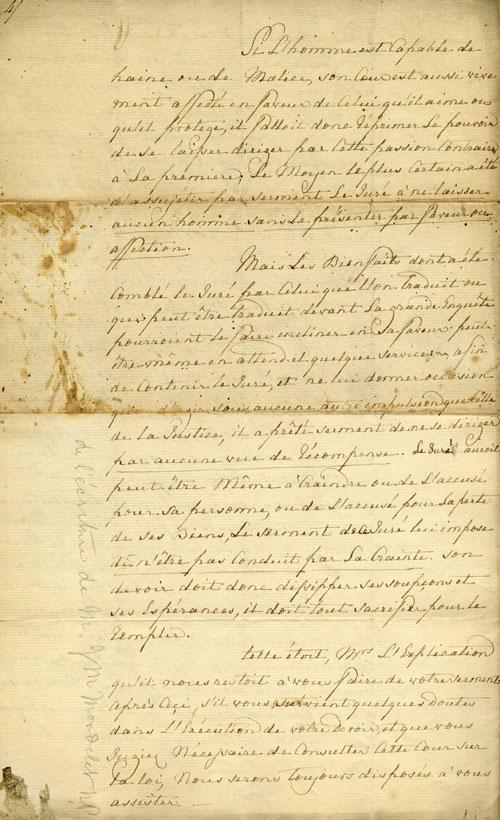 4/
Si L'homme est Capable de
haine ou de Malice, son Cœur est aussi vive
ment affecté en faveur de Celui qu'il aime ou
qu'il protege, il falloit donc réprimer Le pouvoir
de se laisser diriger par Cette passion Contraire
à La premiere; Le Moyen le plus Certain a été
d'assujetir par serment Le Juré à ne laisser
aucun homme sans Le présenter par faveur ou
affection.
Mais Les Bienfaits dont a été
Comblé le Juré par Celui que L'on traduit ou
qui peut être traduit devant La grande Enquête
pourroient Le faire incliner en Sa faveur, peut
être même en attend-il quelque services, afin
de Contenir le Juré, et ne lui donner occasion
d'agir sous aucune autre impulsion que Celle
de La Justice, il a prêté serment de ne se diriger
par aucune vue de récompense. Le Juré auroit
peut être Même à Craindre ou de L'accusé
pour sa personne, ou de L'accusé pour La perte
de ses Biens, Le serment de Ce Juré lui impose
de n'être pas Conduit par La Crainte, son
devoir doit donc dissipper ses soupçons et
ses Espérances, il doit tout sacrifier pour le
remplir.
Telle étoit, Mrs L'Explication
qu'il nous restoit à vous faire de votre serment
après Ceci, s'il vous survient quelques doutes
dans L'Exécution de votre devoir, et que vous
Jugiez Nécessaire de Consulter Cette Cour sur
La loi, Nous serons toujours disposés à vous
assister.
de l'écriture de